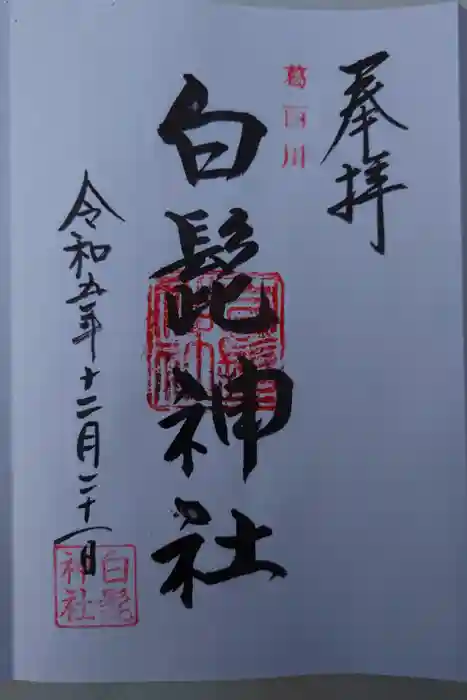 奉拝
葛西川
白髭神社
令和五年十二月二十一日
白髭神社